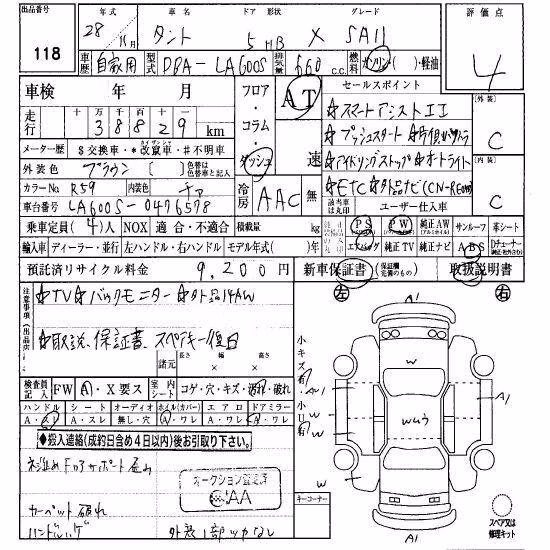 出品番号 年式 車名 ドア 形状 グレード 評価点
118 28年11月 タント 5 HB X SAII 4
車歴 自家用 型式 DBA-LA600S 排気量 660 c.c. 燃料 ガソリン( )・軽油
車検 年 月 フロア・コラム・ダッシュ AT 速 セールスポイント
走行 十万千百十一
38829 km
☆スマートアシストII 外装 C
メーター歴 $交換車・*改竄車・#不明車
☆プッシュスタート
外装色 ブラウン [ ] 色替は色替車と記入
☆アイドリングストップ☆オートライト 内装 C
カラーNo R59 内色 冷房 AAC 無
☆ETC☆
車台番号 LA600S-0476578 該当車は丸印 ユーザー仕入車
乗車定員(4)人 NOX 適合・不適合 積載量 kg PS PW 純正AW サンルーフ 革シート
輸入車 ディーラー・並行 左ハンドル・右ハンドル モデル年式( )年 エアバッグ 純正TV 純正ナビ ABS
預託済リサイクル料金 9,200円 新車保証書(保証継続可能なもの) 取扱説明書
注意事項(出品店) ☆TV☆バックモニター☆ 14AW
左 右
☆取説、保証書、スペアキー後日
諸元 長さ × 幅 × 高さ
検査員記入 FW A・X要ス 室内シート コゲ・穴・キズ・汚れ・破れ
ハンドル シート オーディオ ホイル(カバー) エアロ ドアミラー
A・スレ A・スレ 無し・穴 A・ワレ A・ワレ A・ワレ
●搬入連絡(成約日含め4日以内)後お引取り下さい。
小キズ有 小U有
A1
W
A1
A1
W
W
A1
オークション
CAA
カーペット破れ
キーコーナー
スペア又は修理キット